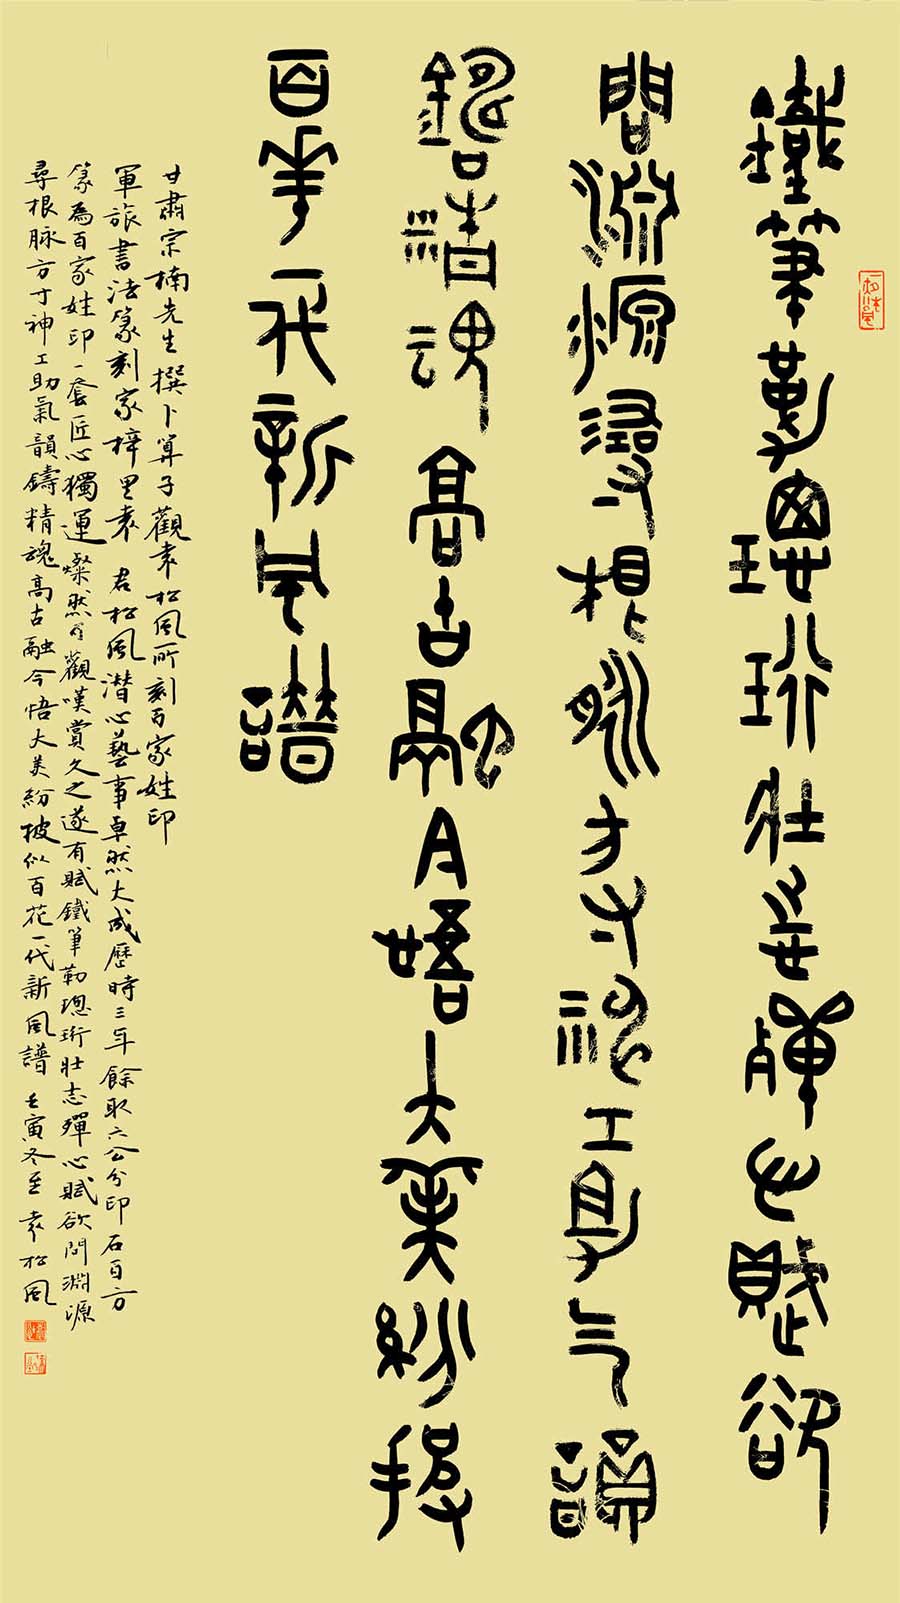 鐵筆勒璁珩壯志殫心賦欲
問淵源尋根脈方寸神工助气韻
鑄精魂高古融今悟大美紛披
百花一代新風譜
甘肅宗楠先生撰卜算子觀袁松風所刻百家姓印
軍旅書法篆刻家梓里袁君松風潛心藝事卓然大成歷時三年餘取六公分印石百方
篆爲百家姓印一套匠心獨運燦然可觀嘆賞久之遂有賦鐵筆勒璁珩壯志殫心賦欲問淵源
尋根脈方寸神工助氣韻鑄精魂高古融今悟大美紛披似百花一代新風譜壬寅冬至袁松風